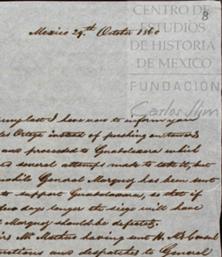 8
CENTRO DE
ESTUDIOS
DE HISTORIA
DE MEXICO
FUNDACIÓN
Carlos Slim
Mexico 29th October 1860
my last I have now to inform you
Ortega instead of pushing onwards
and proceeded to Guadalaxara which
several attempts made to take it, but
while General Marquez has been sent
to support Guadalaxara, so that if
two days longer the siege will have
Marquez should be defeated.
Mr Mathew having sent H. M. Consul
instructions and despatches to General